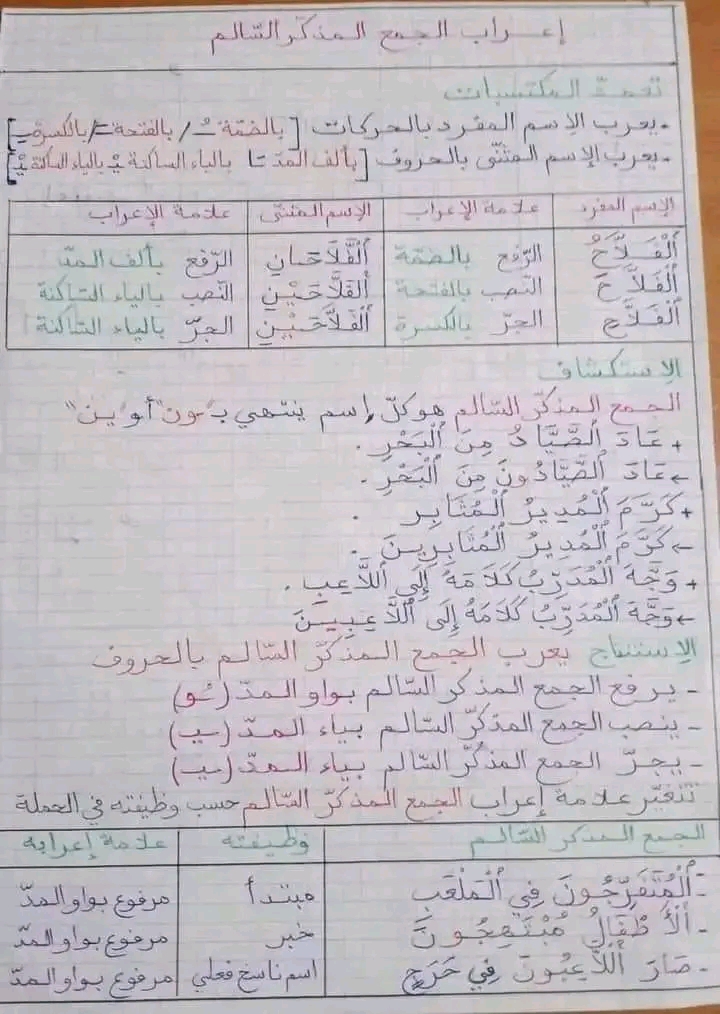 إعراب الجمع المذكر السّالم
تعهد المكتسبات
- يعرب الإسم المفرد بالحركات [بالضمّة ـُ / بالفتحة ـَ / بالكسرة ـِ]
- يعرب الإسم المثنّى بالحروف [بألف المدّ ـَا بالياء الساكنة ـَيْ بالياء الساكنة ـَيْ]
الإسم المفرد | علامة الإعراب | الإسم المثنى | علامة الإعراب
اَلْفَلاَّحُ | الرّفع بالضمّة | اَلْفَلاَّحَانِ | الرّفع بألف المدّ
اَلْفَلاَّحَ | النّصب بالفتحة | اَلْفَلاَّحَيْنِ | النّصب بالياء السّاكنة
اَلْفَلاَّحِ | الجرّ بالكسرة | اَلْفَلاَّحَيْنِ | الجرّ بالياء السّاكنة
الإستكشاف
الجمع المذكّر السّالم هو كلّ إسم ينتهي بـ "ـون" أو "ين"
+ عَادَ اَلصَّيَّادُ مِنَ اَلْبَحْرِ .
← عَادَ اَلصَّيَّادُونَ مِنَ اَلْبَحْرِ .
+ كَرَّمَ اَلْمُدِيرُ اَلْمُثَابِر .
← كَرَّمَ اَلْمُدِيرُ اَلْمُثَابِرِينَ .
+ وَجَّهَ اَلْمُدَرِّبُ كَلاَمَهُ إِلَى اَللاَّعِبِ .
← وَجَّهَ اَلْمُدَرِّبُ كَلاَمَهُ إِلَى اَللاَّعِبِينَ
الإستنتاج يعرب الجمع المذكّر السّالم بالحروف
- يرفع الجمع المذكر السّالم بواو المدّ (ـُو)
- ينصب الجمع المذكّر السّالم بياء المدّ (ـِي)
- يجرّ الجمع المذكّر السّالم بياء المدّ (ـِي)
تتغيّر علامة إعراب الجمع المذكّر السّالم حسب وظيفته في الجملة
الجمع المذكر السّالم | وظيفته | علامة إعرابه
- اَلْمُتَفَرِّجُونَ فِي اَلْمَلْعَبِ | مبتدأ | مرفوع بواو المدّ
- اَلأَطْفَالُ مُبْتَهِجُونَ | خبر | مرفوع بواو المدّ
- صَارَ اَللاَّعِبُونَ فِي حَرَجٍ | اسم ناسخ فعلي | مرفوع بواو المدّ